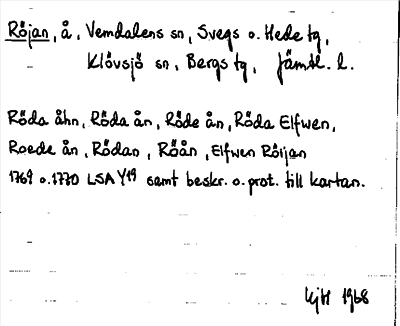 Röjan, å, Vemdalens sn, Svegs o. Hede tg,
Klövsjö sn, Bergs tg, Jämtl. l.
Röda åhn, Röda ån, Röde ån, Röda Elfwen,
Roede ån, Rödan, Röån, Elfwen Röijan
1769 o. 1770 LSA Y19 samt beskr. o. prot. till kartan.
1968